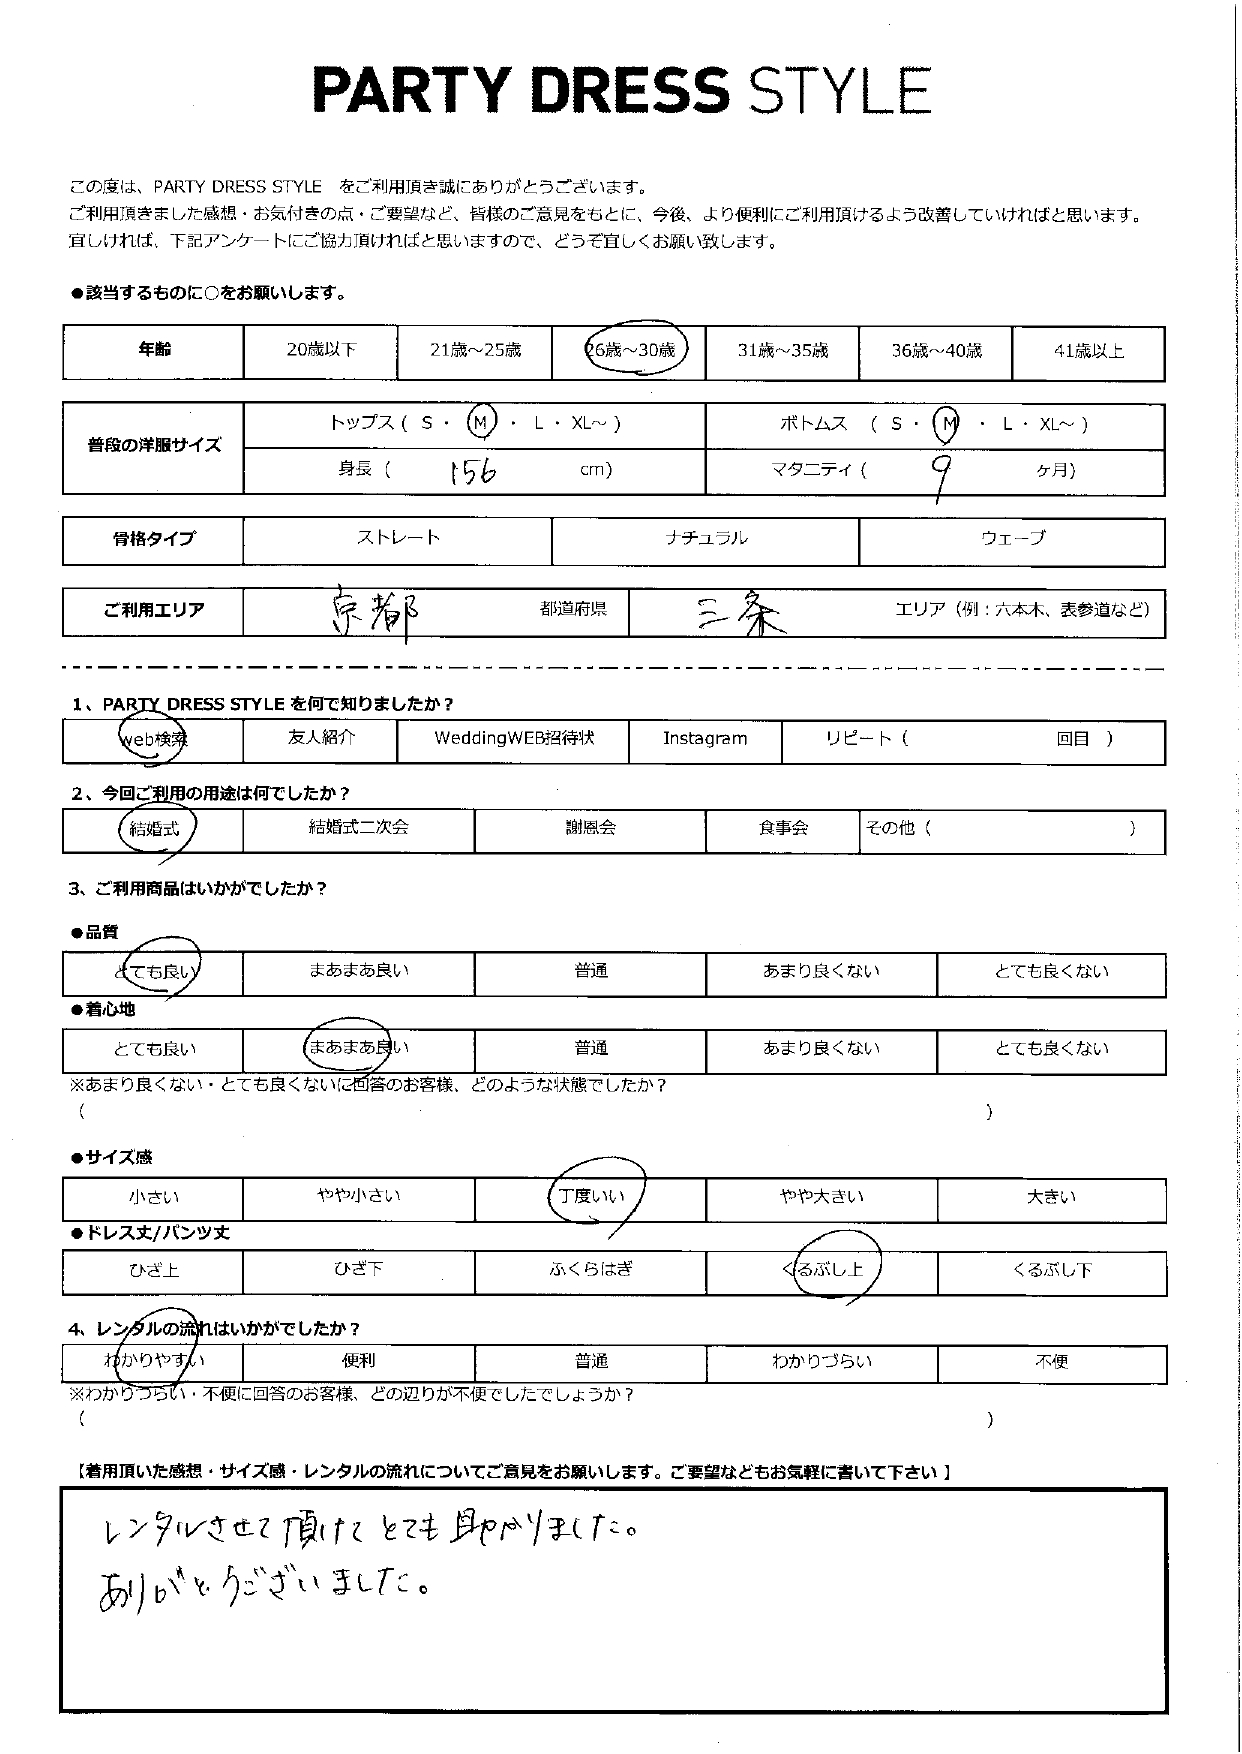 PARTY DRESS STYLE
この度は、PARTY DRESS STYLE をご利用頂き誠にありがとうございます。
ご利用頂きました感想・お気付きの点・ご要望など、皆様のご意見をもとに、今後、より便利にご利用頂けるよう改善していければと思います。
宜しければ、下記アンケートにご協力頂ければと思いますので、どうぞ宜しくお願い致します。
●該当するものに○をお願いします。
年齢 20歳以下 21歳～25歳 26歳～30歳 31歳～35歳 36歳～40歳 41歳以上
普段の洋服サイズ
トップス ( S ・ M ・ L ・ XL～ ) ボトムス ( S ・ M ・ L ・ XL～ )
身長 ( 156 cm) マタニティ ( 9 ヶ月)
骨格タイプ ストレート ナチュラル ウェーブ
ご利用エリア 京都 都道府県 三条 エリア（例：六本木、表参道など）
1、PARTY DRESS STYLE を何で知りましたか？
web検索 友人紹介 WeddingWEB招待状 Instagram リピート ( 回目 )
2、今回ご利用の用途は何でしたか？
結婚式 結婚式二次会 謝恩会 食事会 その他 ( )
3、ご利用商品はいかがでしたか？
●品質
とても良い まあまあ良い 普通 あまり良くない とても良くない
●着心地
とても良い まあまあ良い 普通 あまり良くない とても良くない
※あまり良くない・とても良くないに回答のお客様、どのような状態でしたか？
( )
●サイズ感
小さい やや小さい 丁度いい やや大きい 大きい
●ドレス丈/パンツ丈
ひざ上 ひざ下 ふくらはぎ くるぶし上 くるぶし下
4、レンタルの流れはいかがでしたか？
わかりやすい 便利 普通 わかりづらい 不便
※わかりづらい・不便に回答のお客様、どの辺りが不便でしたでしょうか？
( )
【着用頂いた感想・サイズ感・レンタルの流れについてご意見をお願いします。ご要望などもお気軽に書いて下さい 】
レンタルさせて頂けてとても助かりました。
ありがとうございました。